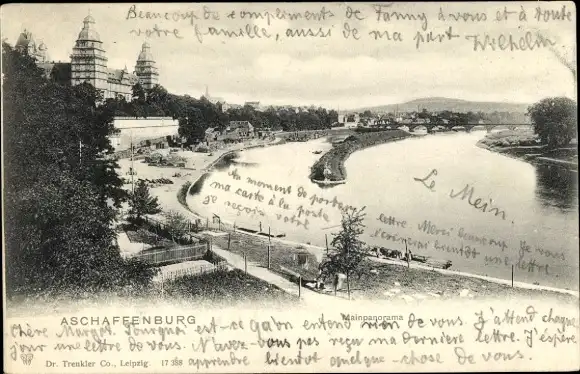 Beaucoup de compliments de Fanny à vous et à toute
votre famille, aussi de ma part
Wilhelm
Au moment de porter
ma carte à la poste
je reçois votre
lettre Merci beaucoup je vous
écrirai bientôt une lettre
Le Mein
ASCHAFFENBURG
Mainpanorama
Chère Margot. Pourquoi est-ce qu'on entend rien de vous. J'attend chaque
jour une lettre de vous. N'avez-vous pas reçu ma derniere lettre. J'espère
Dr. Trenkler Co., Leipzig 17 388
apprendre bientôt quelque-chose de vous.